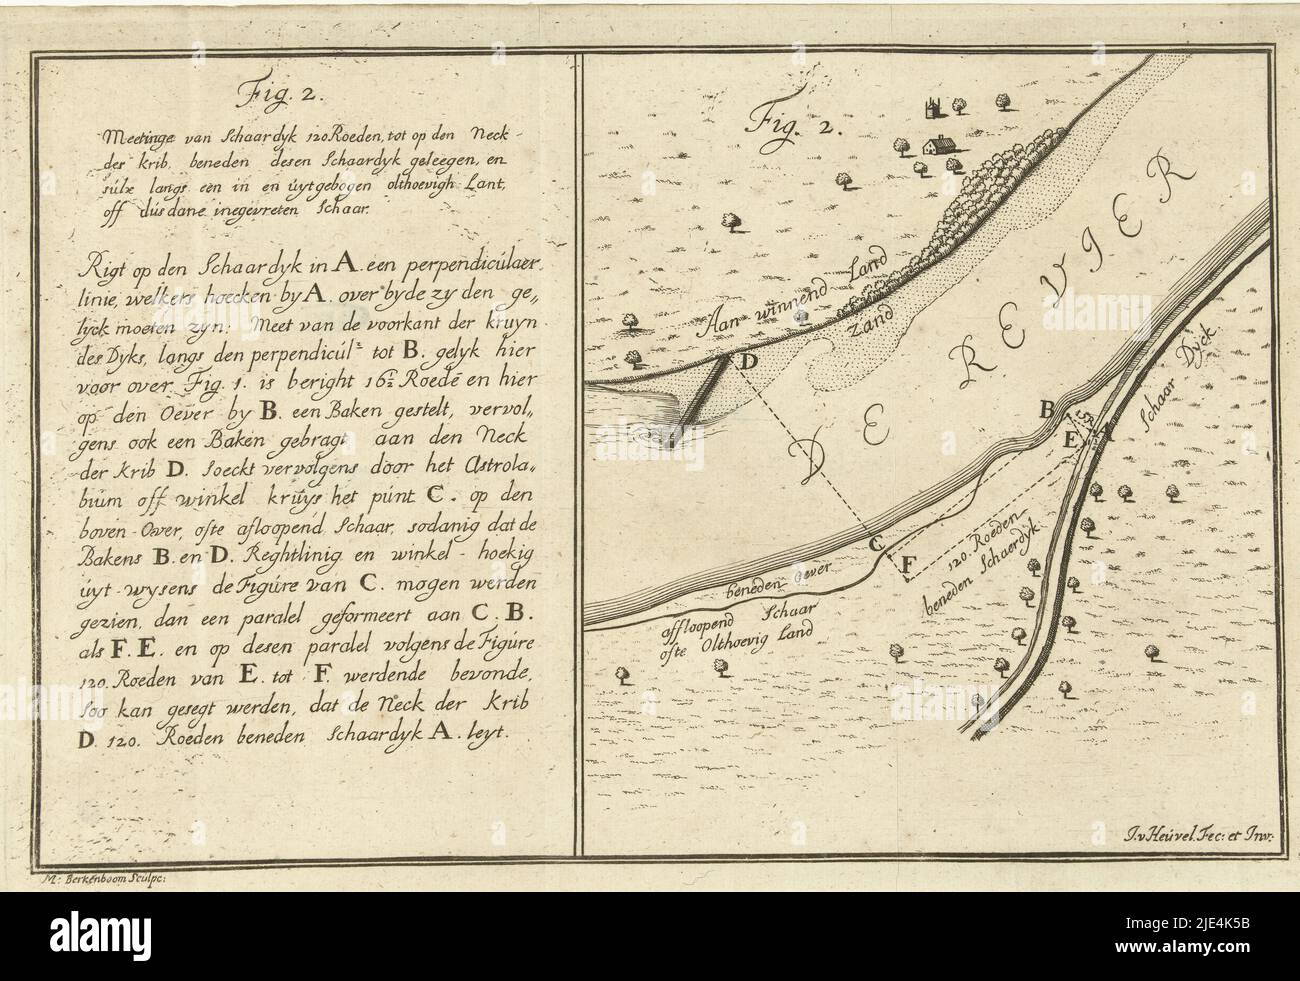 Fig. 2.
Meetinge van Schaardyk 120 Roeden, tot op den Neck -
des krib, beneden desen Schaardyk geleegen, en
sulx langs een in en uytgebogen olthoevigh Lant,
off dusdane inegevreten Schaar.
Rigt op den Schaardyk in A. een perpendiculaer
linie, welkers hoecken by A. over byde zy den ge„
lyck moeten zyn: Meet van de voorkant der kruyn
des Dyks, langs den perpendicul^r tot B. gelyk hier
voor over Fig. 1. is beright 16½ Roedē en hier
op den Oever by B. een Baken gestelt, vervol„
gens ook een Baken gebragt aan den Neck
der krib D. Soeckt vervolgens door het Astrola„
bium off winkel kruys het punt C. op den
boven-Oever, ofte afloopend Schaar, sodanig dat de
Bakens B. en D. Reghtlinig en winkel-hoekig
uyt-wysens de Figure van C. mogen werden
gezien, dan een paralel geformeert aan C. B.
als F. E. en op desen paralel volgens de Figure
120. Roeden van E. tot F. werdende bevonde,
Soo kan gesegt werden, dat de Neck der Krib
D. 120. Roeden beneden Schaardyk A. leyt.
M: Berkenboom Sculpc:
Fig. 2.
DE REVIER
Aan winnend Land
Zand
D
B
E
A
Schaar Dyck
C
F
120. Roeden
beneden Schaerdyk
beneden Oever
affloopend Schaar
ofte Olthoevig Land
J. v Heuvel. Fec: et Inv:
alamy
Image ID: 2JE4K5B
www.alamy.com